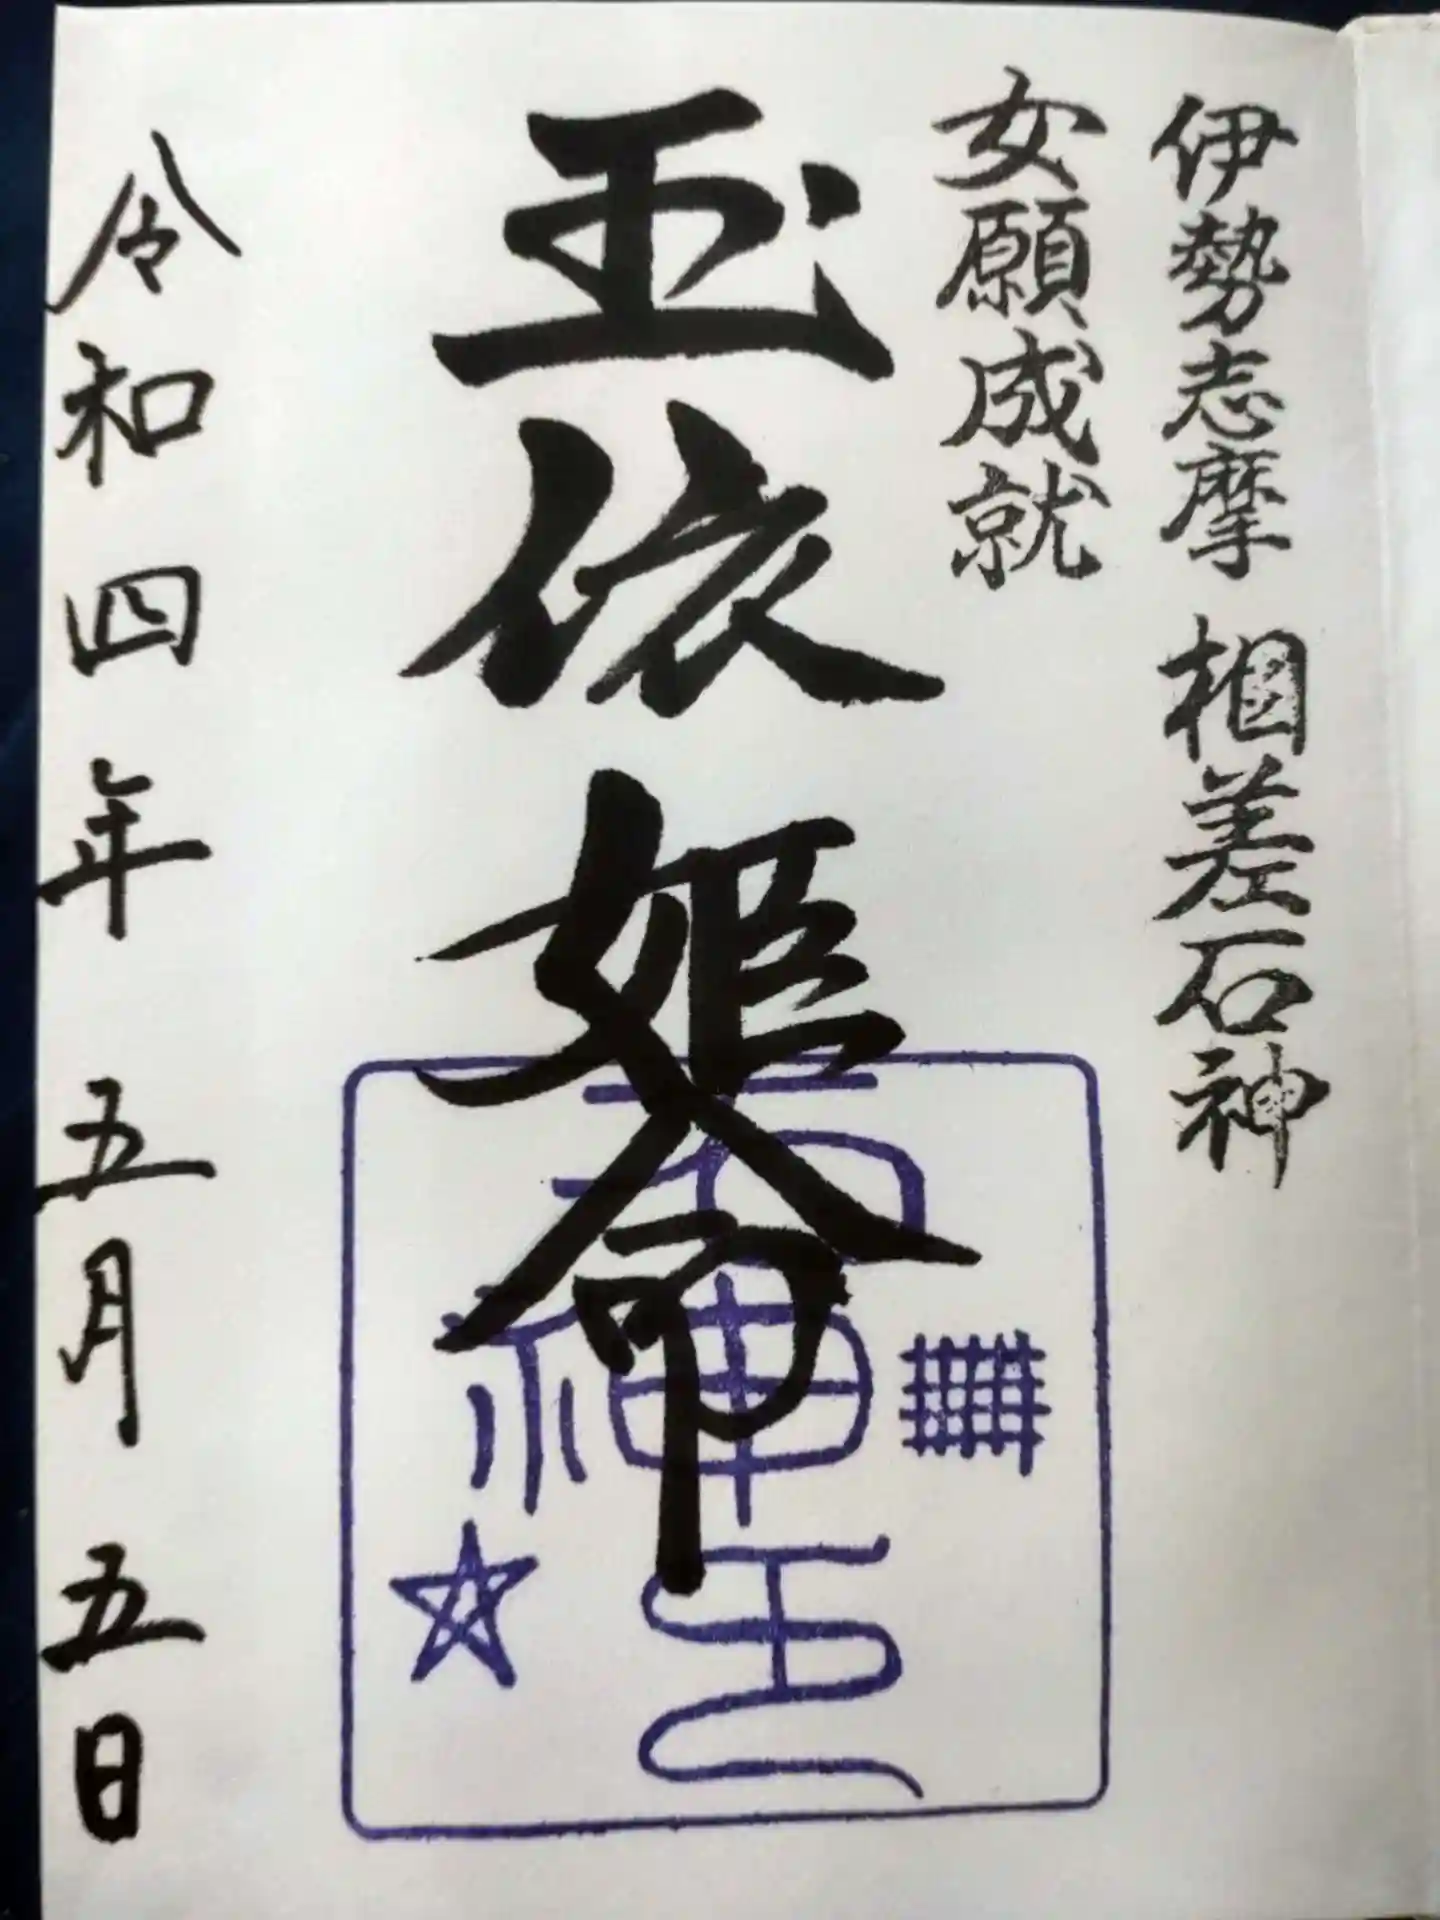 伊勢志摩 相差石神
女願成就
玉依姫命
令和四年五月五日